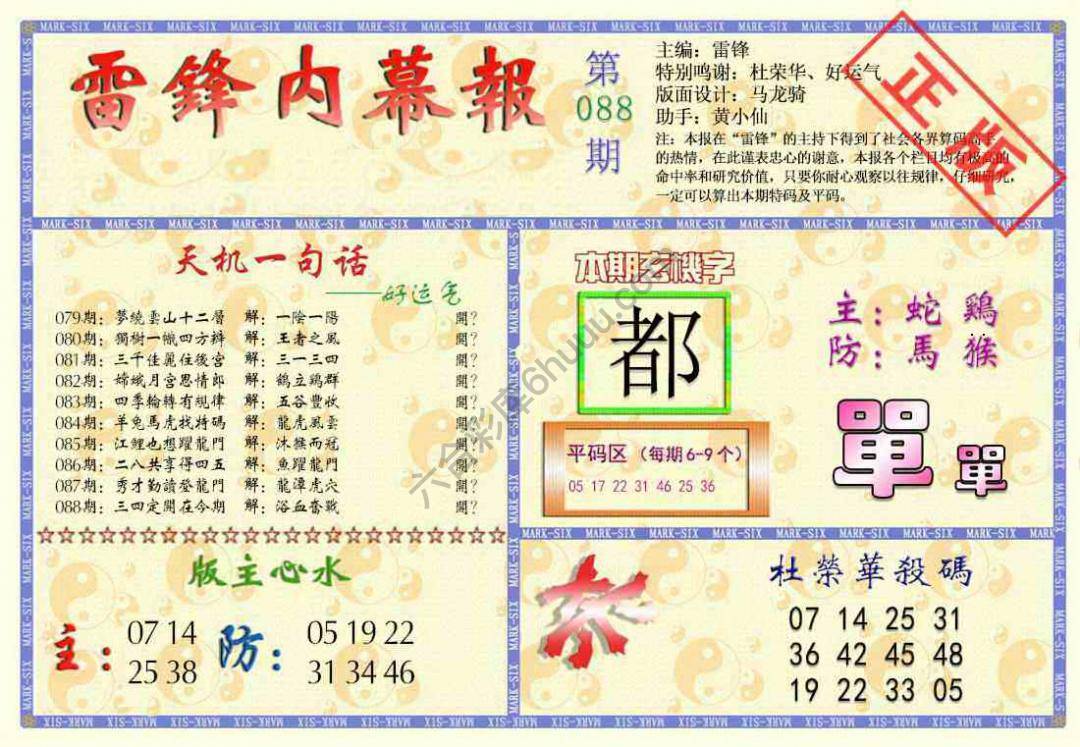 雷鋒内幕報
第
088
期
主编：雷锋
特别鸣谢：杜荣华、好运气
版面设计：马龙骑
助手：黄小仙
注：本报在“雷锋”的主持下得到了社会各界算码高手
的热情，在此谨表忠心的谢意，本报各个栏目均有极高的
命中率和研究价值，只要你耐心观察以往规律，仔细研究，
一定可以算出本期特码及平码。
正版
天机一句话
——好运气
079期：夢繞雲山十二層 解：一陰一陽 開?
080期：獨樹一幟四方辨 解：王者之風 開?
081期：三千佳麗住後宮 解：三一三四 開?
082期：嫦娥月宫思情郎 解：鶴立鶏群 開?
083期：四季輪轉有規律 解：五谷豐收 開?
084期：羊兔馬虎找特碼 解：龍虎風雲 開?
085期：江鯉也想躍龍門 解：沐猴而冠 開?
086期：二八共享得四五 解：魚躍龍門 開?
087期：秀才勤讀登龍門 解：龍潭虎穴 開?
088期：三四定開在今期 解：浴血奮戰 開?
本期玄機字
都
主：蛇 鷄
防：馬 猴
平码区（每期6-9个）
05 17 22 31 46 25 36
單 單
版主心水
主：
07 14
25 38
防：
05 19 22
31 34 46
杀
杜榮華殺碼
07 14 25 31
36 42 45 48
19 22 33 05
六合彩库6huuu.com
MARK-SIX